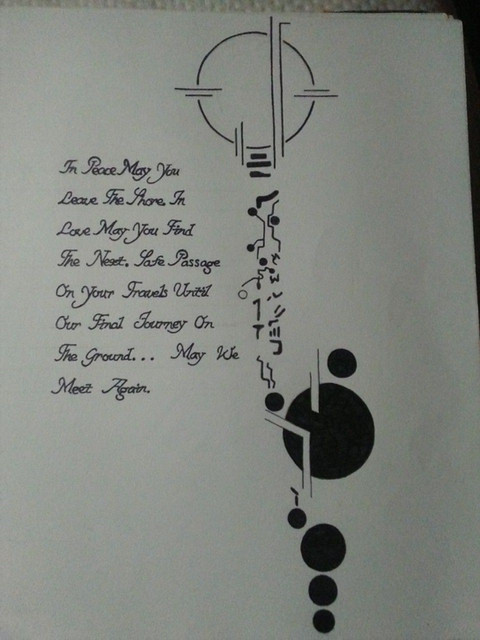 In Peace May You
Leave The Shore. In
Love May You Find
The Next. Safe Passage
On Your Travels Until
Our Final Journey On
The Ground... May We
Meet Again.